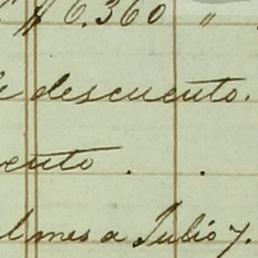 $ 6.360 "
descuento.
ento . .
l mes a Julio 7.